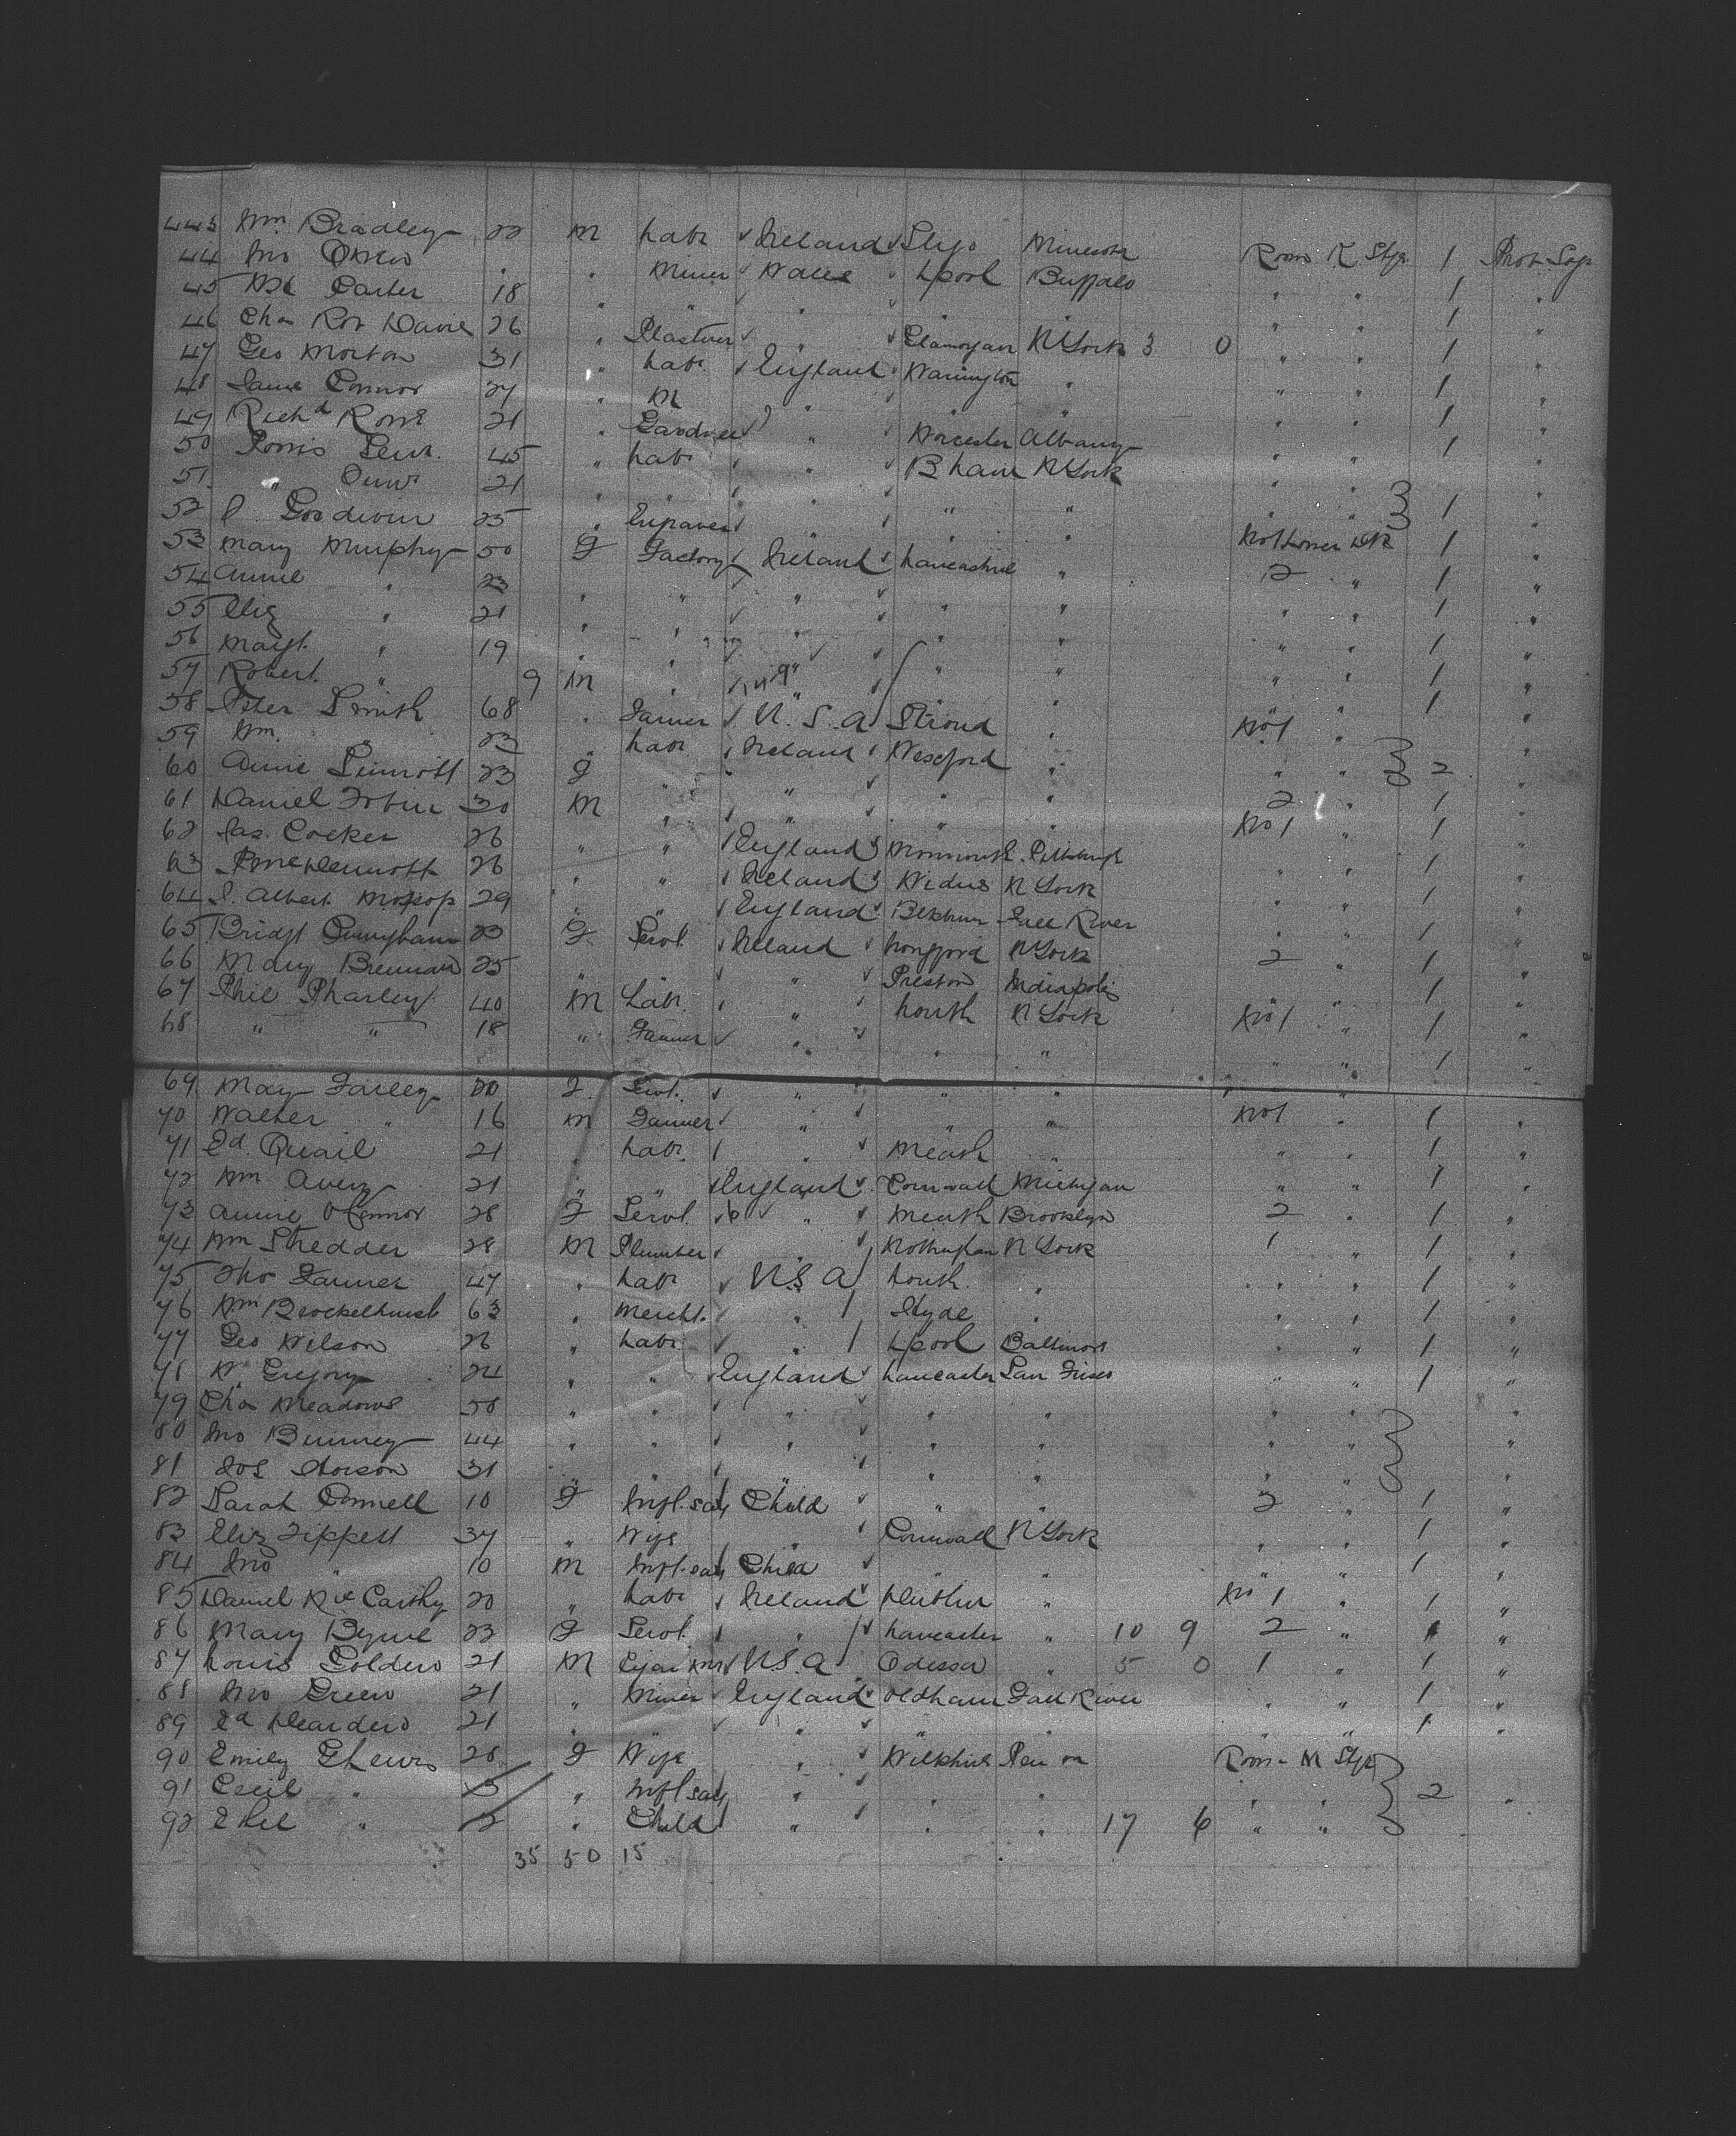 443 Wm Bradley 22 M Labr Ireland Sligo Minesota Room K Stge 1 Prot Soj
44 Jno Owen " " Miner Wales Lpool Buffalo " " 1 "
45 Carter 18 " " " " " " 1 "
46 Chas Rob Davie 26 " Plasterer " Glamorgan N York 3 0 " " 1 "
47 Geo Morton 31 " Labr England Warrington " " " 1 "
48 James Connor 27 " M " " " " " 1 "
49 Richd Rowe 21 " Gardner " Worcester Albany " " 1 "
50 Levi 45 " Labr " Bham N York " " "
51 " 21 " " " " " " " 1 "
52 Goodwin 25 " Engraver " " " No 1 Lower Dk 1 "
53 Mary Murphy 50 F Factory Ireland Lancashire " 2 " 1 "
54 Annie " 23 " " " " " " " 1 "
55 Eliz " 21 " " " " " " " 1 "
56 Margt " 19 " " " " " " " 1 "
57 Robert " 9 M " " " " 1 "
58 Peter Smith 68 " Farmer U.S.A Stroud " No 1 "
59 Wm " 23 " Labr Ireland Wexford " " " 2 "
60 Annie Sinnott 23 F " " " " 2 " 1 "
61 Daniel Tobin 30 M " " " " No 1 " 1 "
62 Jas. Cocker 26 " " England Monmouth Pittsburgh " " 1 "
63 McDermott 26 " " Ireland Widnes N York " " 1 "
64 Albert 29 " " England Blkburn Fall River " " 1 "
65 Bridgt Cunningham 23 F Servt Ireland Longford N York 2 " 1 "
66 Mary Brennan 25 " " " Preston Indiapolis " " 1 "
67 Phil Pharley 40 M Labr " Louth N York No 1 " 1 "
68 " " 18 " Farmer " " " " " 1 "
69 May Farley 20 F Servt. " " " " "
70 Walter " 16 M Farmer " " " No 1 " 1 "
71 Ed Quail 21 " Labr. " Meath " " " 1 "
72 Wm Avery 21 " " England Cornwall Michigan " " 1 "
73 Annie OConnor 28 F Servt. " Meath Brooklyn 2 " 1 "
74 Wm Shedder 28 M Plumber " Nottingham N York 1 " 1 "
75 Tho Farmer 47 " Labr U.S.A Louth " " " 1 "
76 Wm Brockelhurst 63 " Mercht. " Hyde " " " 1 "
77 Geo Wilson 26 " Labr " Lpool Baltimore " " 1 "
78 W. Gregory 24 " " England Lancaster San Frisco " " 1 "
79 Chas Meadows 58 " " " " " " " "
80 Jno Bunney 44 " " " " " " " "
81 Jos 31 " " " " " " " "
82 Sarah Connell 10 F Child " " 2 " 1 "
83 Eliz Tippett 37 " Wife " Cornwall N York " " 1 "
84 Jno " 10 M Child " " " " 1 "
85 Daniel McCarthy 20 " Labr Ireland Dublin " No 1 " 1 "
86 Mary Byrne 23 F Servt. " Lancaster " 10 9 2 " 1 "
87 Louis Golden 21 M U.S.A Odessa " 5 0 1 " 1 "
88 Jno Green 21 " Miner England Oldham Fall River " " 1 "
89 Ed Dearden 21 " " " " " " " 1 "
90 Emily 28 F Wife " Wiltshire Room M Stge
91 Cecil " 3 " " " " " " 2 "
92 " 2 " Child " " " 17 6 " "
35 50 15